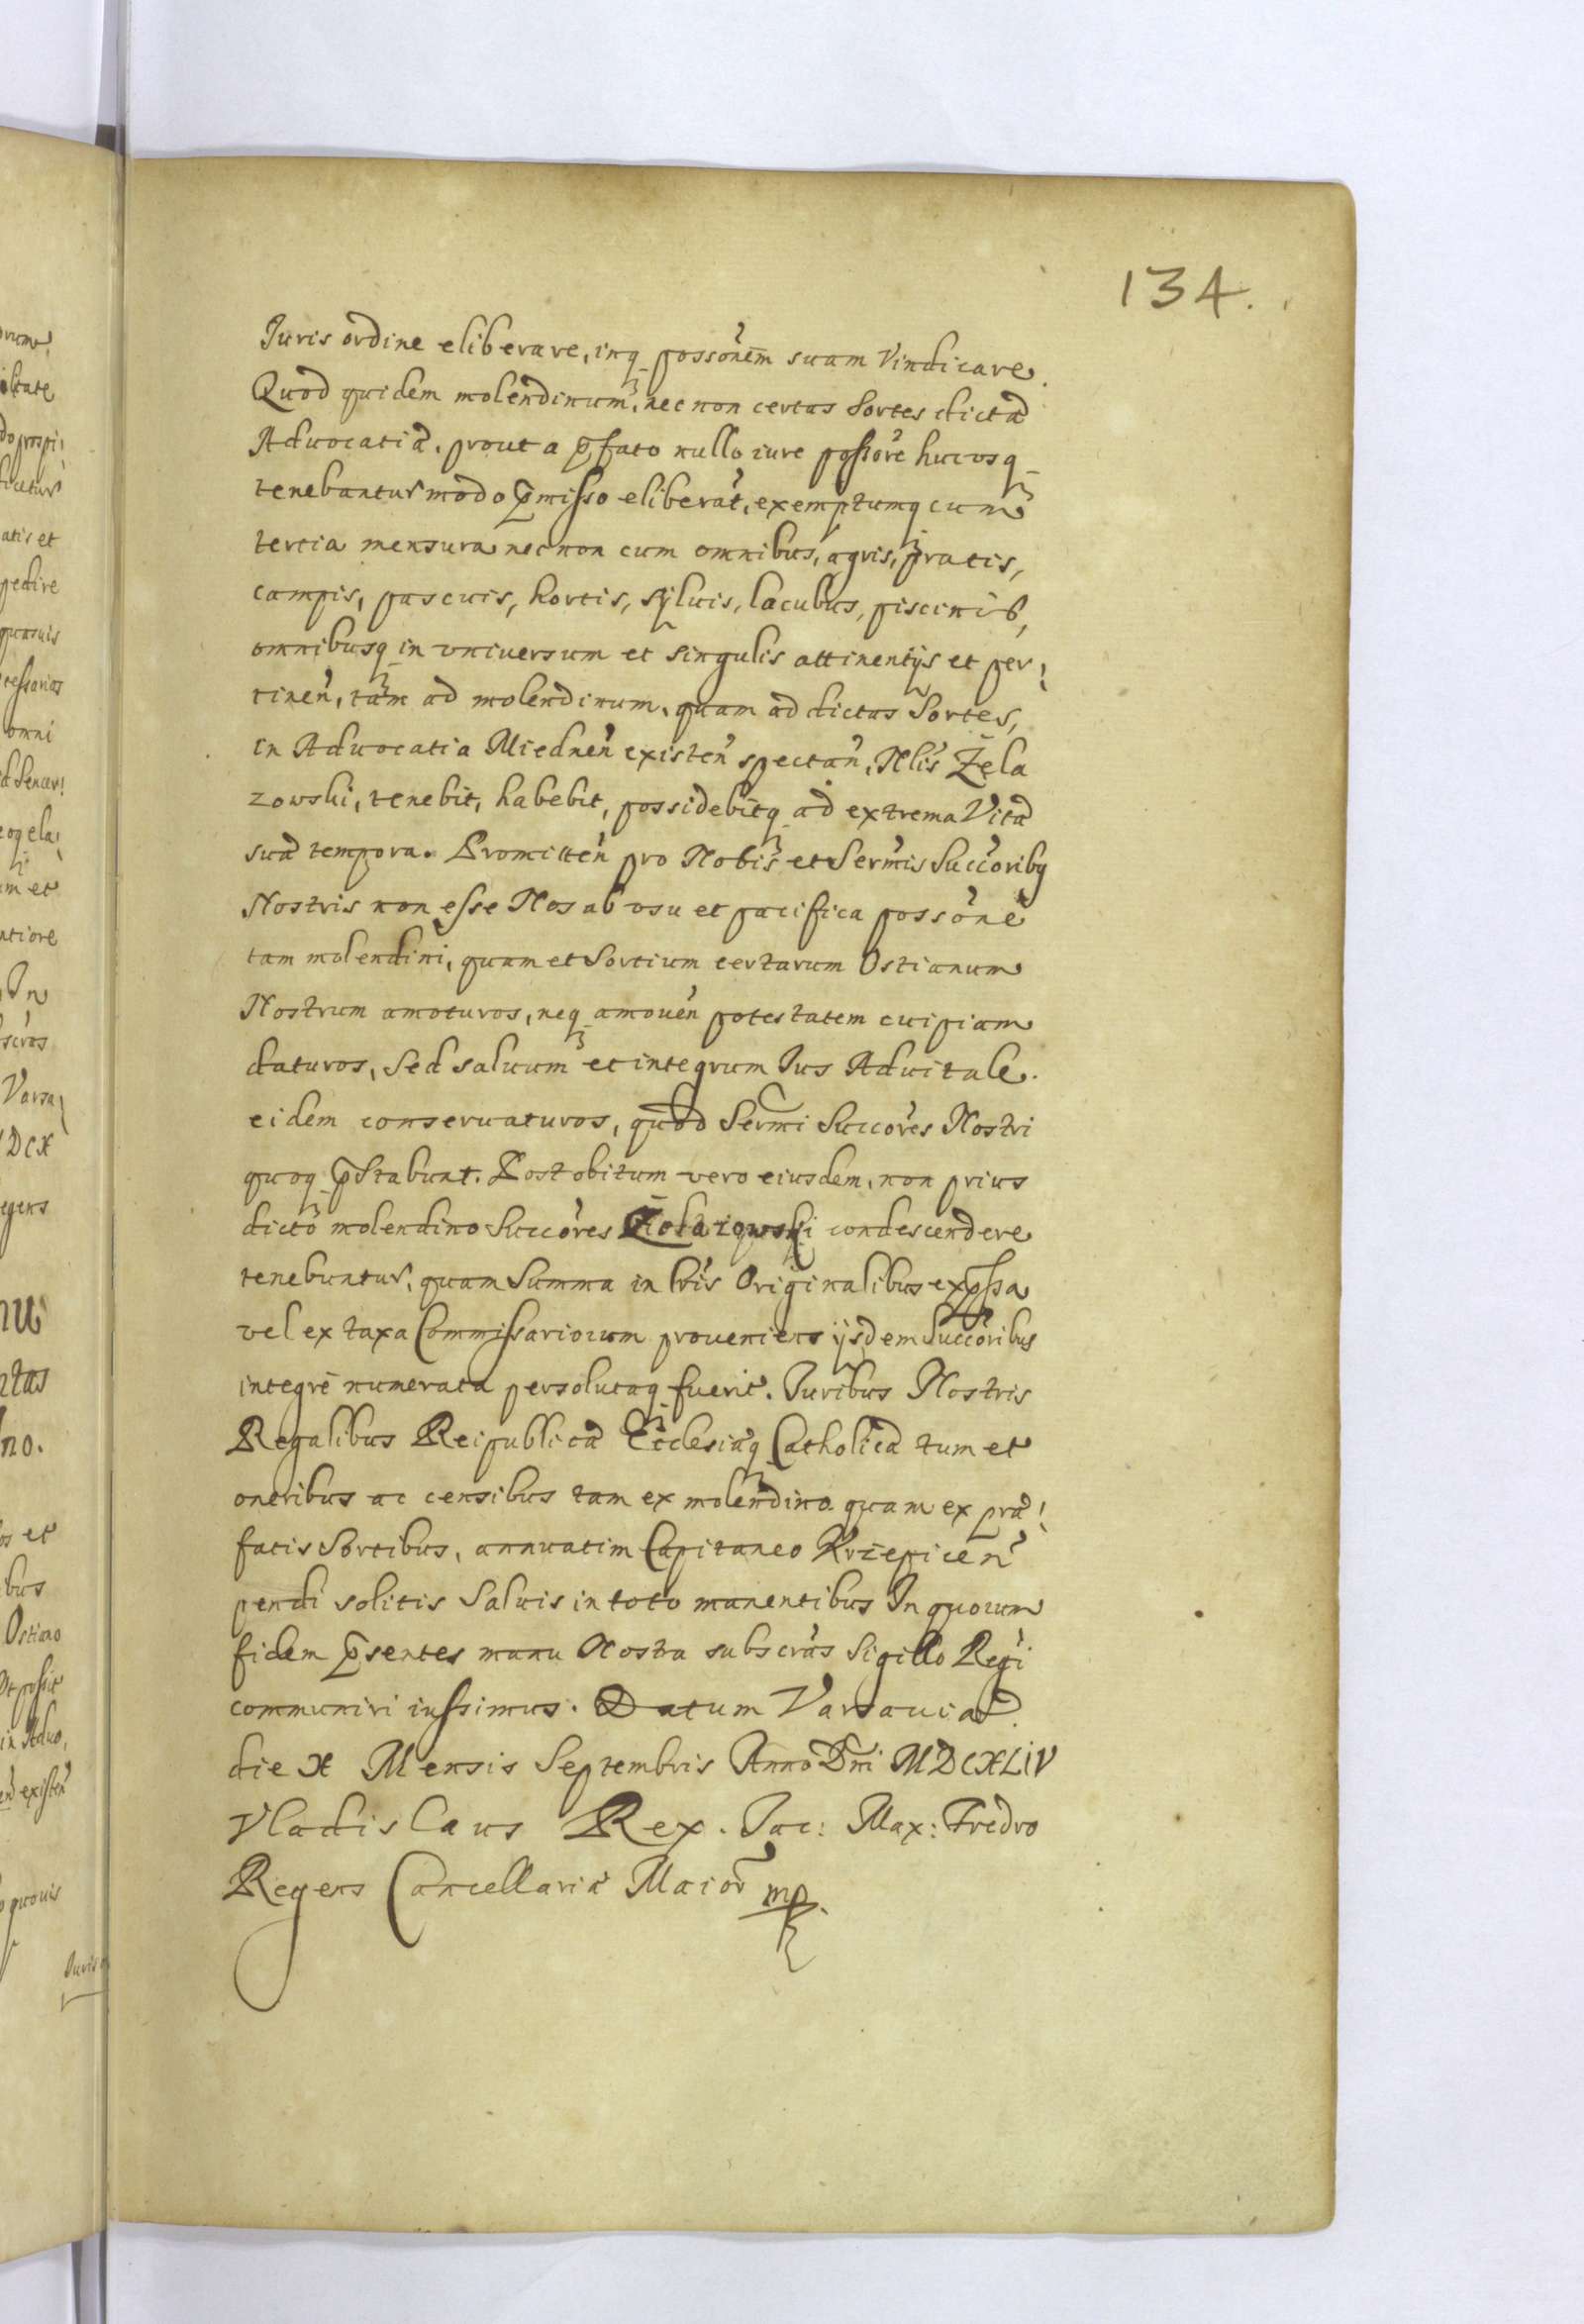 134.
Iuris ordine eliberare, inq possonem suam Vindicare.
Quod quidem molendinum, nec non certas Sortes dictæ
Aduocatiæ. prout a pfato nullo iure possore hucusq
tenebantur modo pmisso eliberat, exemptumq cum
tertia mensura nec non cum omnibus, agris, pratis,
campis, pascuis, hortis, syluis, lacubus, piscinis,
omnibusq in vniuersum et singulis attinentijs et per
tinen, tam ad molendinum, quam ad dictas Sortes,
in Aduocatia Miednen existen spectan, Nlis Żela
zowski, tenebit, habebit, possidebitq ad extrema Vitæ
suæ tempora. Promitten pro Nobis et Sermis Succoribq
Nostris non esse Nos ab vsu et pacifica possone
tam molendini, quam et Sortium certarum Ostianum
Nostrum amoturos, neq amouen potestatem cuipiam
daturos, Sed saluum et integrum Ius Aduitale.
eidem conseruaturos, quod Sermi Succores Nostri
quoq pstabunt. Post obitum vero eiusdem, non prius
dicto molendino Succores Żelazowski condescendere
tenebuntur, quam Summa in lris Originalibus expssa
vel ex taxa Commissariorum proueniens ijsdem Succoribus
integre numerata persolutaq fuerit. Iuribus Nostris
Regalibus Reipublicæ Ecclesiæq Catholicæ tum et
oneribus ac censibus tam ex molendino quam ex præ
fatis Sortibus, annuatim Capitaneo Krzepicen
pendi solitis Saluis in toto manentibus In quorum
fidem psentes manu Nostra subscras Sigillo Regi
communiri iussimus. Datum Varsauiæ
die X Mensis Septembris Anno Dni MDCXLIV
Vladislaus Rex. Iac: Max: Fredro
Regens Cancellariæ Maior mp